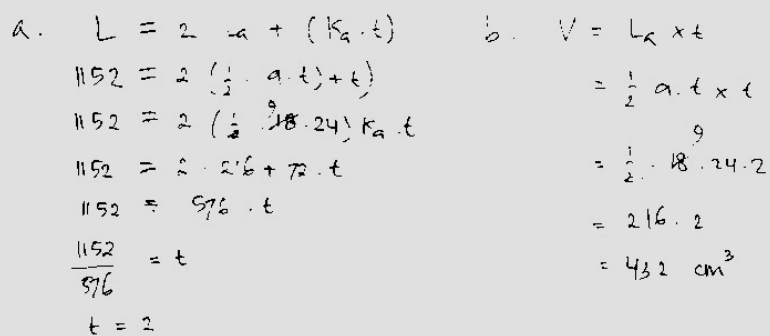 a. L = 2 La + (Ka . t)
1152 = 2 (1/2 . a . t) + t)
1152 = 2 (1/2 . 18 9 . 24) Ka . t
1152 = 2 . 216 + 72 . t
1152 = 576 . t
1152/576 = t
t = 2
b. V = La x t
= 1/2 a . t x t
= 1/2 . 18 9 . 24 . 2
= 216 . 2
= 432 cm³